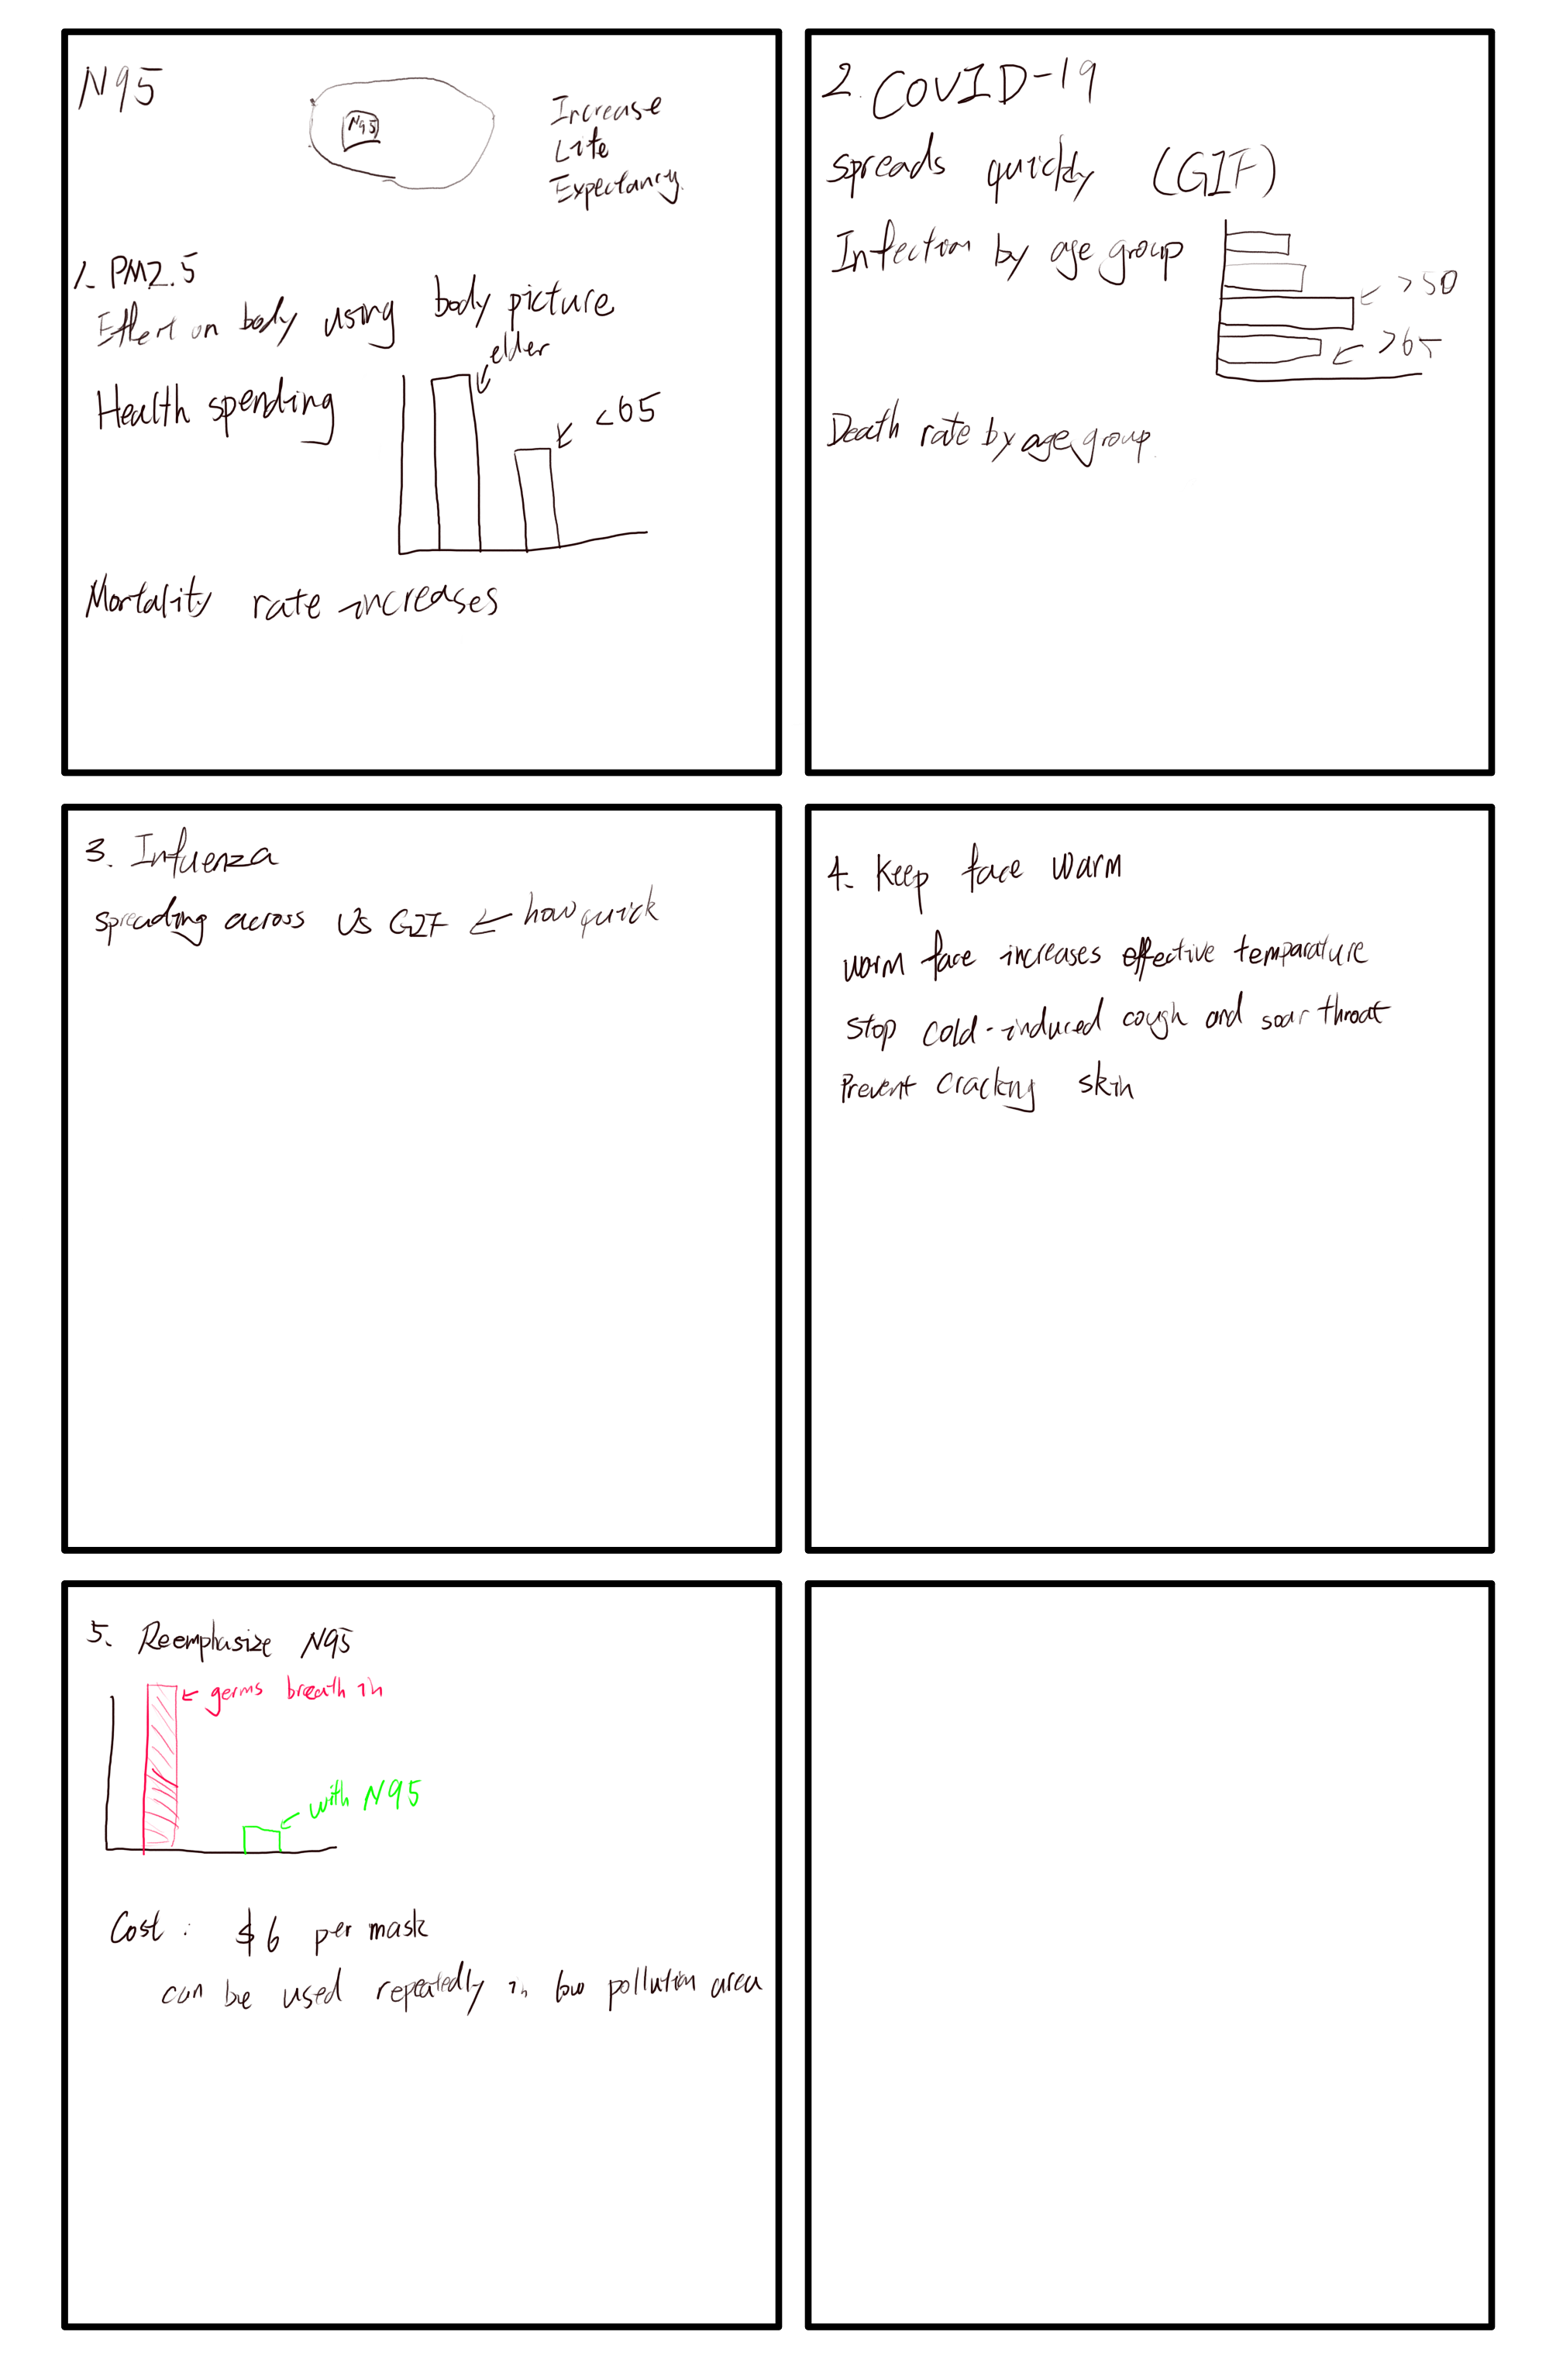 N95
N95
Increase
Life
Expectancy.
1. PM2.5
Effect on body using body picture
elder
Health spending
<65
Mortality rate increases
2. COVID-19
spreads quickly (GIF)
Infection by age group
>50
>65
Death rate by age group.
3. Infuenza
spreading across US GIF ← how quick
4. Keep face warm
warm face increases effective temparature
Stop cold-induced cough and soar throat
Prevent cracking skin
5. Reemphasize N95
← germs breath in
← with N95
Cost: $6 per mask
can be used repeatedly in low pollution area